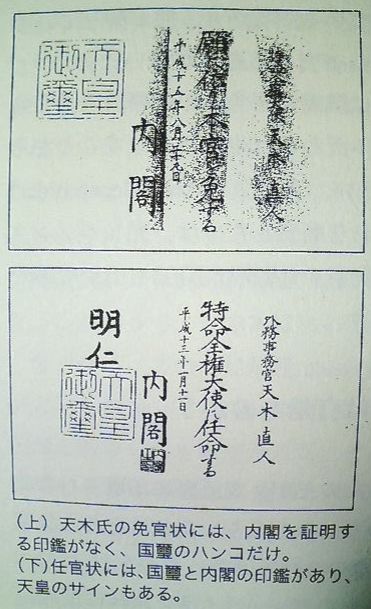 特命全権大使 天木 直人
願に依り本官を免ずる
平成十五年八月二十九日
内閣
天皇御璽
外務事務官 天木 直人
特命全権大使に任命する
平成十三年一月十一日
内閣
明仁
天皇御璽
(上) 天木氏の免官状には、内閣を証明す
る印鑑がなく、国璽のハンコだけ。
(下) 任官状には、国璽と内閣の印鑑があり、
天皇のサインもある。